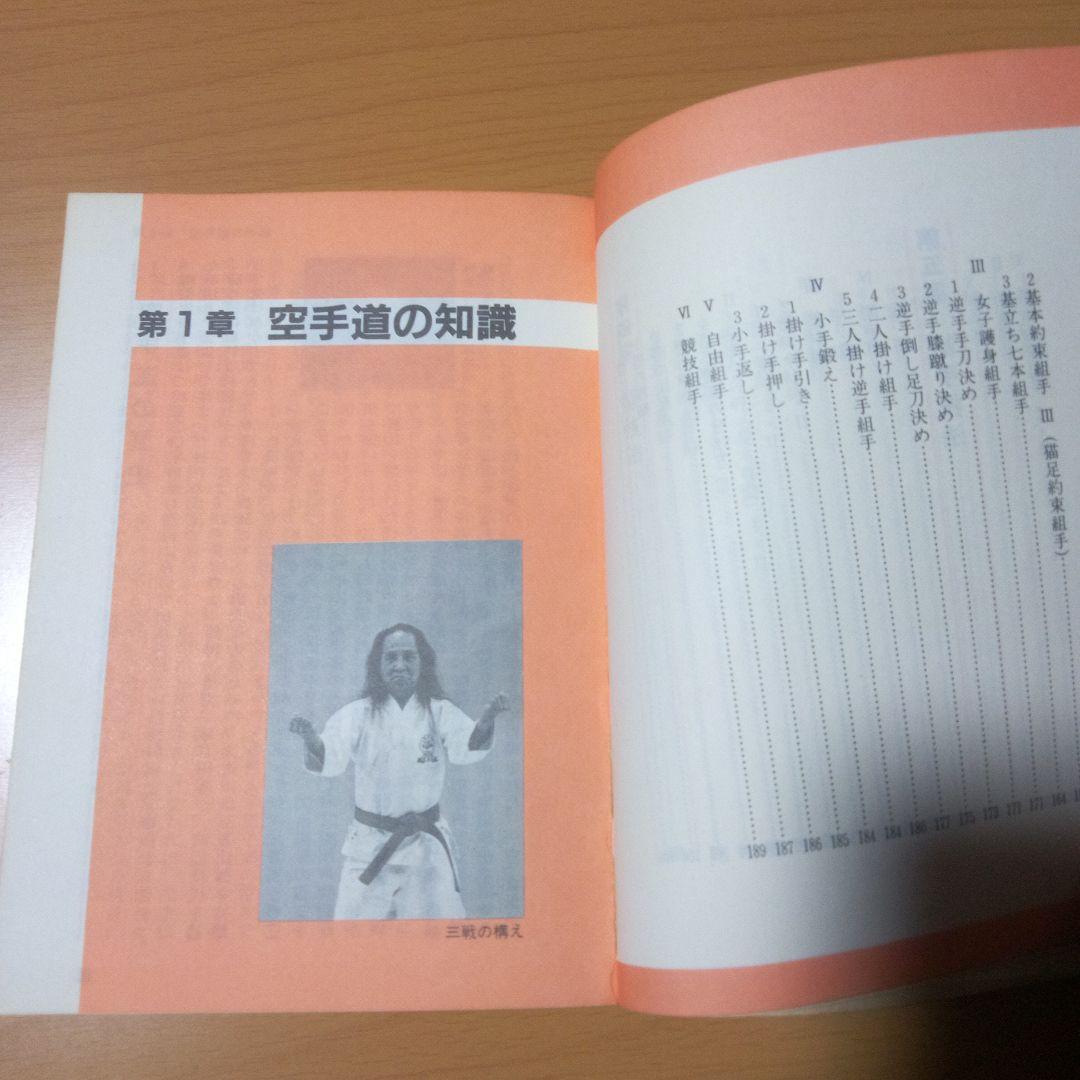 2基本約束組手 Ⅲ（猫足約束組手）
3基立ち七本組手……164
Ⅲ 女子護身組手……171
1逆手手刀決め……171
2逆手膝蹴り決め……173
3逆手倒し足刀決め……175
4二人掛け組手……177
5三人掛け逆手組手……180
Ⅳ 小手鍛え……184
1掛け手引き……184
2掛け手押し……185
3小手返し……186
Ⅴ 自由組手……187
Ⅵ 競技組手……189
第1章 空手道の知識
三戦の構え